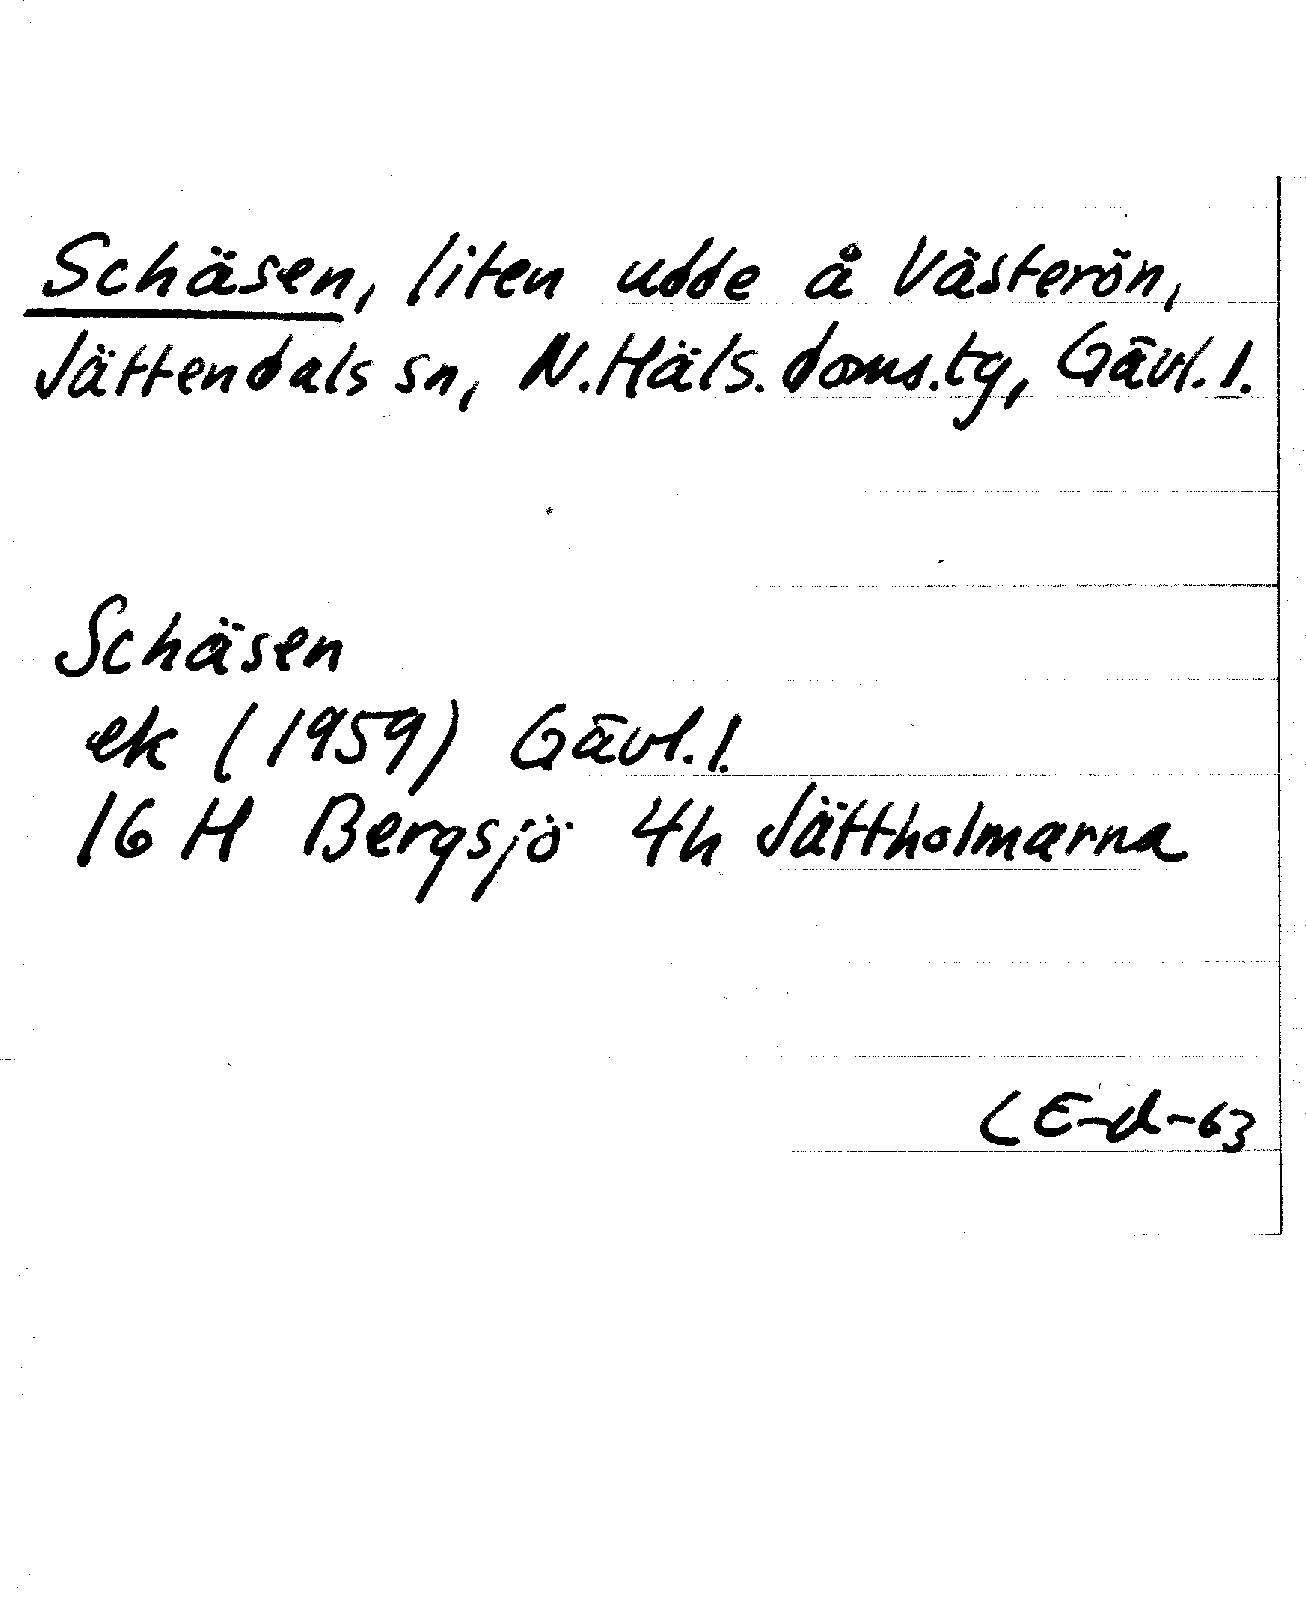 Schäsen, liten udde å Västerön,
Jättendals sn, N.Häls.doms.tg, Gävl.l.
Schäsen
ek (1959) Gävl.l.
16 H Bergsjö 4h Jättholmarna
CE-d-63